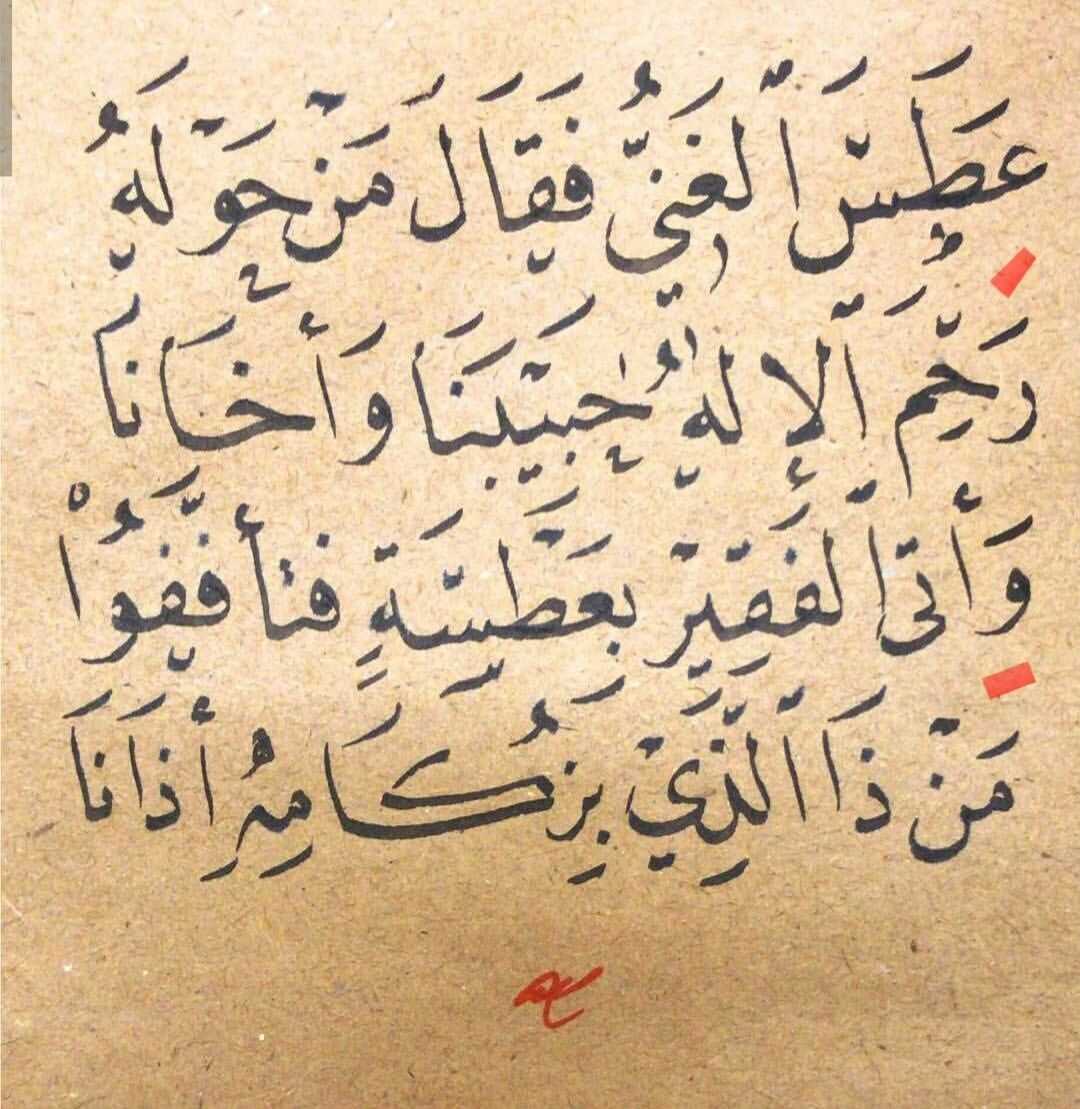 عَطَسَ ٱلْغَنِيُّ فَقَالَ مَنْ حَوْلَهُ
رَحِمَ ٱلْإِلَهُ حَبِيبَنَا وَأَخَانَا
وَأَتَى ٱلْفَقِيرُ بِعَطْسَةٍ فَتَأَفَّفُوْا
مَنْ ذَا ٱلَّذِيْ بِزُكَامِهِ أَذَانَا